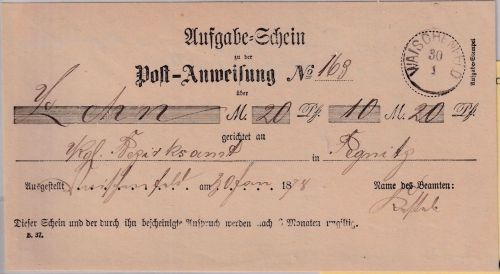 Aufgabe-Schein
zu der
Post-Anweisung No 168
WAISCHENFELD
30
1
Aufgabe-Stempel
über
Zehn M. 20 Pf. 10 M. 20 Pf.
gerichtet an
Kgl. Bezirksamt in Pegnitz
Ausgestellt Waischenfeld am 30 Jan 1878 Name des Beamten:
Dieser Schein und der durch ihn bescheinigte Anspruch werden nach 6 Monaten ungiltig.
B. 37.